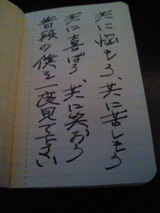 共に悩もう、共に苦しもう
共に喜ぼう、共に笑おう
普段の僕を一度見て下さい